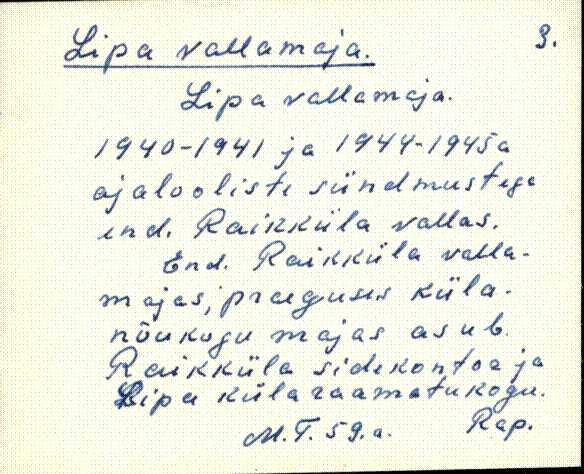 Lipa vallamaja.
3.
Lipa vallamaja.
1940-1941 ja 1944-1945a
ajalooliste sündmustega
end. Raikküla vallas.
End. Raikküla valla-
majas, praeguses küla-
nõukogu majas asub
Raikküla sidekontor ja
Lipa külaraamatukogu.
M.T. 59.a.
Rap.